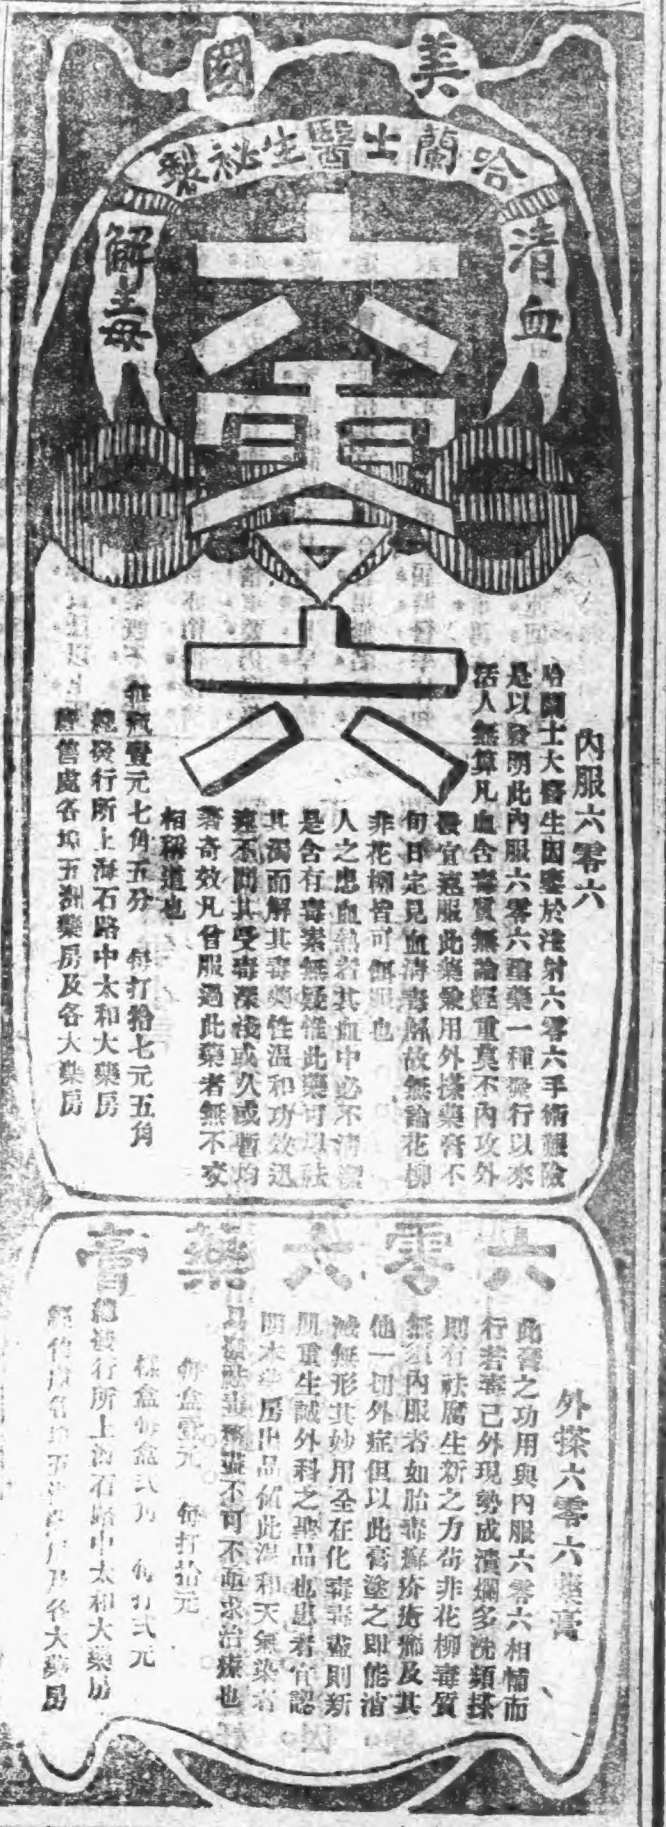 美國
哈蘭士醫生祕製
清血
解毒
六零六
內服六零六
哈蘭士大醫生因鑒於注射六零六手術艱險
是以發明此內服六零六藥一種發行以來
活人無算凡血含毒質無論輕重莫不內攻外
發宜速服此藥兼用外搽藥膏不
旬日定見血清毒解故無論花柳
非花柳皆可服也
人之患血熱者其血中必不清潔
是含有毒素無疑惟此藥可以祛
其濁而解其毒藥性溫和功效迅
速不問其受毒深淺或久或暫均
著奇效凡曾服過此藥者無不交
相稱道也
每瓶壹元七角五分 每打拾七元五角
總發行所上海石路中太和大藥房
經售處各埠五洲藥房及各大藥房
六零六藥膏
外搽六零六藥膏
此膏之功用與內服六零六相輔而
行若毒已外現勢成潰爛多洗頻搽
則有祛腐生新之力苟非花柳毒質
無須內服者如胎毒癬疥瘡癤及其
他一切外症但以此膏塗之即能消
滅無形其妙用全在化毒毒盡則新
肌重生誠外科之聖品也患者宜認
明本藥房出品值此溫和天氣染者
易發祛毒務盡不可不亟求治療也
每盒壹元 每打拾元
樣盒每盒弍角 每打弍元
總發行所上海石路中太和大藥房
經售處各埠五洲藥房及各大藥房